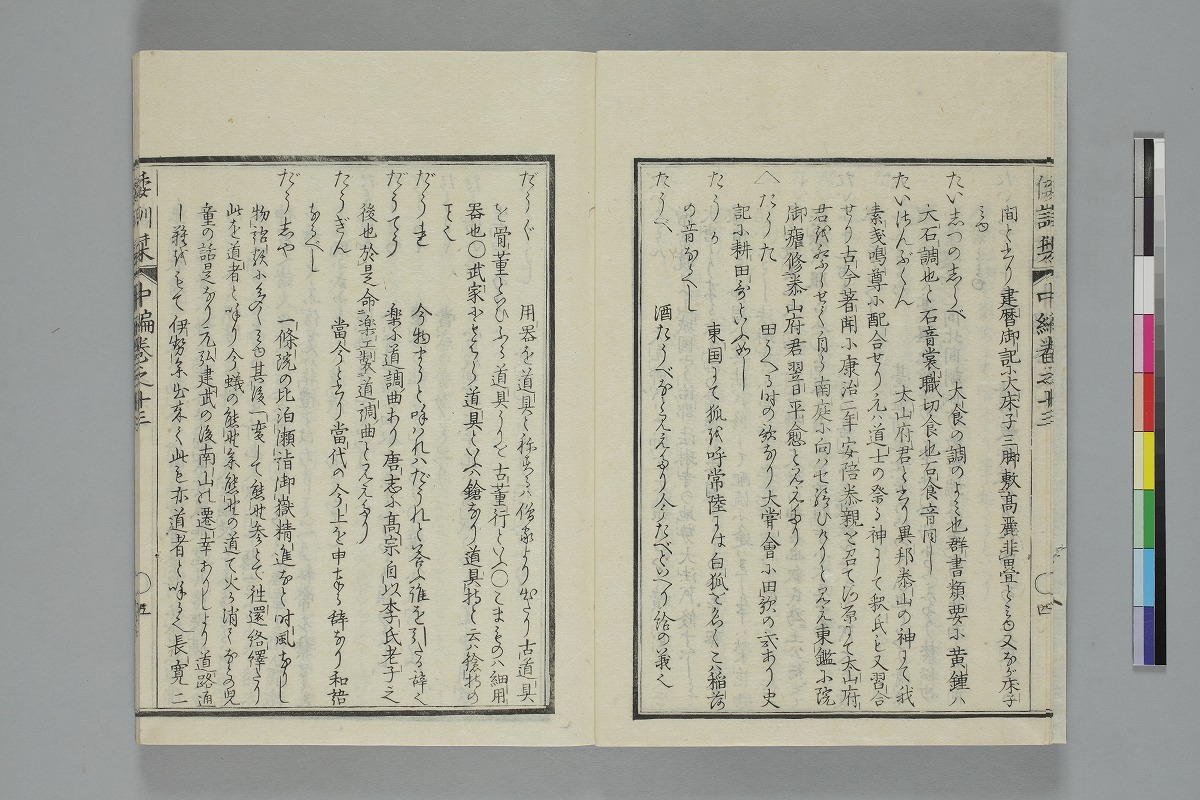 倭訓栞 中編巻之十三 四
間と云り建暦御記に大床子三脚敷高麗非畳とミゆ又なが床子
ミゆ
たいしつのしらべ 大食の調のよミ也群書類要に黄鐘ハ
大石調也と石音裳職切食也石食音同し
たいはんぶくん 太山府君と書り異邦泰山の神にて我
素戔嗚尊に配合せり元道士の祭る神にて釈氏も又習合
せり古今著聞に康治二年安倍泰親を召て
御殯修泰山府君翌日平愈とみえたり
たうた 田うへる時の歌なり大甞會に田歌の式あり史
記に耕田歌といふめし
たうか 東国にて狐を呼常陸にハ白狐を名く こハ稲荷
の音なるべし
たうべ 酒たうべなとみえたり今たべといへり給の義也
だうぐ 用器を道具と称するハ僧家より出たり古道具
を骨董といひふる道具うりを古董行といふ〇こまものハ細用
器也〇武家にもちうる道具といふハ鎗なり道具持と云ハ鎗持の
事也
だうれ 今物まうと呼ハれハだうれと答ふ誰を引たる辞也
だうてう 楽に道調曲あり唐志に高宗自以李氏老子之
後也於是命楽工製道調曲とみえたり
たうぎん 當今と書り當代の今上を申奉る辞なり和語
なるべし
だうしや 一條院の比泊瀬詣御嶽精進なと時風なりし
物語類に多くミゆ其後一変して熊野参とて往還絡繹たり
此を道者と呼り今蟻の熊野参熊野の道て火か消たなとの児
童の話是なり元弘建武の後南山の遷幸ありしより道路通
し難きをもて伊勢参出来て此をも亦道者と呼るや長寛二
倭訓栞 中編巻之十三 五